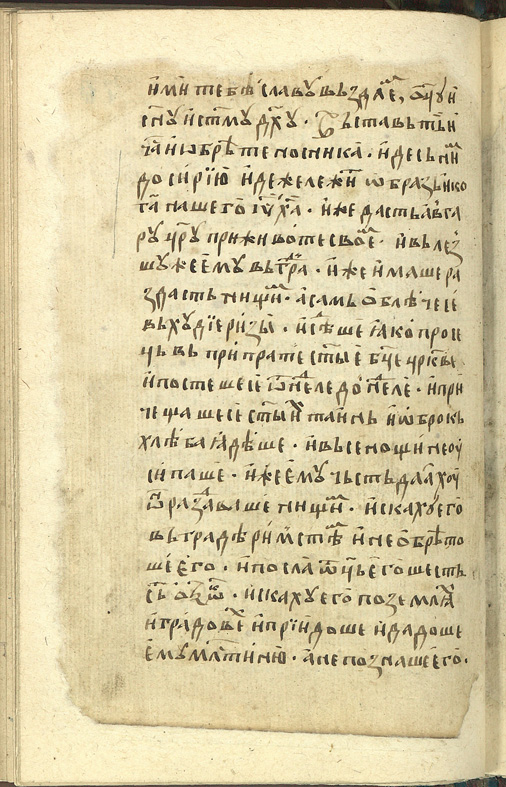 и҆мꙋ тебѣ славꙋ въздае, ѡ҃цꙋ и҆
с҃нꙋ и҆ ст҃мꙋ дх҃ꙋ · Въставь ть и҆
ѡбрѣте носника · и҆ десьни
до си́рїю и҆деже лежи ѡбразь и҆ко
на нашего і҆ꙋ х҃а · и҆же дасть авга
рꙋ цр҃ꙋ при животе свое · и҆ вьлез
шꙋ же е҆мꙋ вь гра · и҆же и҆маше ра
здасть нищи · а самь ѡ҆блѣче се
вь хꙋдїе ризы · и҆ сѣше ꙗко про
ць вь припрате ст҃ые б҃це црькве
и҆ постеше се ѿ неле до неле · и҆ при
чещаше се ст҃ыи таинь и҆ ѡброкь
хлѣба ꙗдѣше · и҆ вьсе нощи не ѹ
сипаше · и҆ же е҆мꙋ чьсть даахꙋ
раздаваше нищи · и҆скахꙋ его
вь граде римьстѣ и҆ не ѡ҆брѣто
ше е҆го · и҆ посла ѿць е҆го шесть
сьѿ · и҆скахꙋ его по земла
и҆ градове и҆ прїидоше и҆ дадоше
е҆мꙋ млⷭтиню · а не познаше е҆го ·